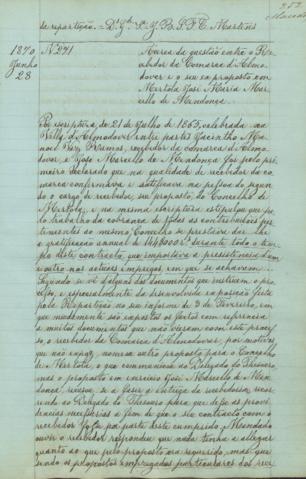 da repartição. = D.or G.l
1870
Junho
28
Nº 271
Acerca da questão entre o Re-
cebedor da Comarca d'Almo-
dovar e o seu ex proposto em
Mertola José Maria Mar-
cello de Mendonça.
Por escriptura de 21 de Julho de 1863, celebrada na
Villa d'Almodovar entre partes Jacintho Ma-
noel Paz Ramos, recebedor da comarca d'Almo-
dovar e José Marcello de Mendonça foi pelo pri-
meiro declarado que na qualidade de recebedor da co-
marca confirmava e ratificava na pessoa do segun-
do o cargo de recebedor, seu proposto, do Concelho de
Mertola, e na mesma escriptura estipulou que pe-
lo trabalho da cobrança de todas as contribuições per-
tencentes ao mesmo Concelho se prestava dar-lhe
a gratificação annual de durante todo o tem-
po deste contracto, que importava a persistencia d'um
e outro nos actuaes empregos, em que se achavam.
Segundo se vê d'alguns dos documentos que instruem o pro-
cesso, e especialmente da desenvolvida exposição feita
pela Repartição no seu informe de 9 de Fevereiro, em
que miudamente são expostos os factos com referencia
a muitos documentos que não vieram com este proces-
so, o recebedor da Comarca d'Almodovar, por motivos
que não expoz, nomeou outro proposto para o Concelho
de Mertola, o que communicou ao Delegado do Thesouro,
mas o proposto em exercicio José Marcello de Men-
donça, recusou-se a fazer a entrega da recebedoria, reque-
rendo ao Delegado do Thesouro para que desse as provi-
dencias necessarias a fim de que o seu contracto com o
recebedor fosse por parte deste cumprido. Mandado
ouvir o recebedor respondeu que nada tinha a allegar
quanto ao que pelo proposto era requerido, mas que
sendo os propostos empregados particulares dos rece-